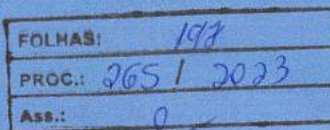 FOLHAS: 197
PROC.: 265 / 2023
Ass.: